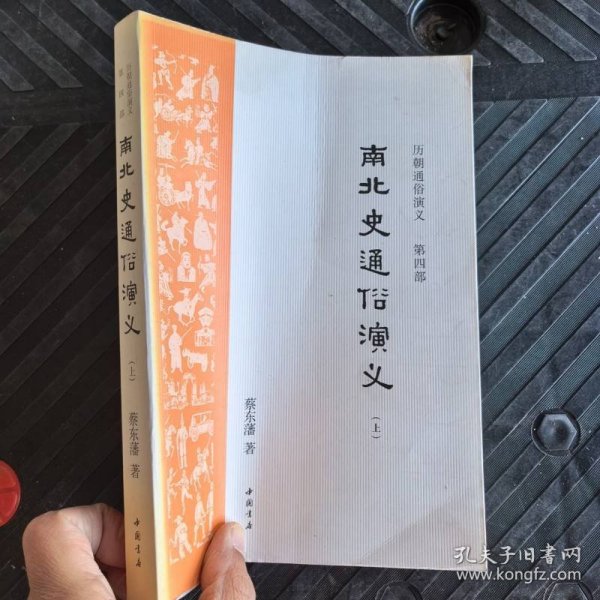 历朝通俗演义 第四部
南北史通俗演义
（上）
蔡东藩 著
中国书店
历朝通俗演义
第四部
南北史通俗演义
（上）
蔡东藩 著
中国书店
孔夫子旧书网
www.kongfz.com